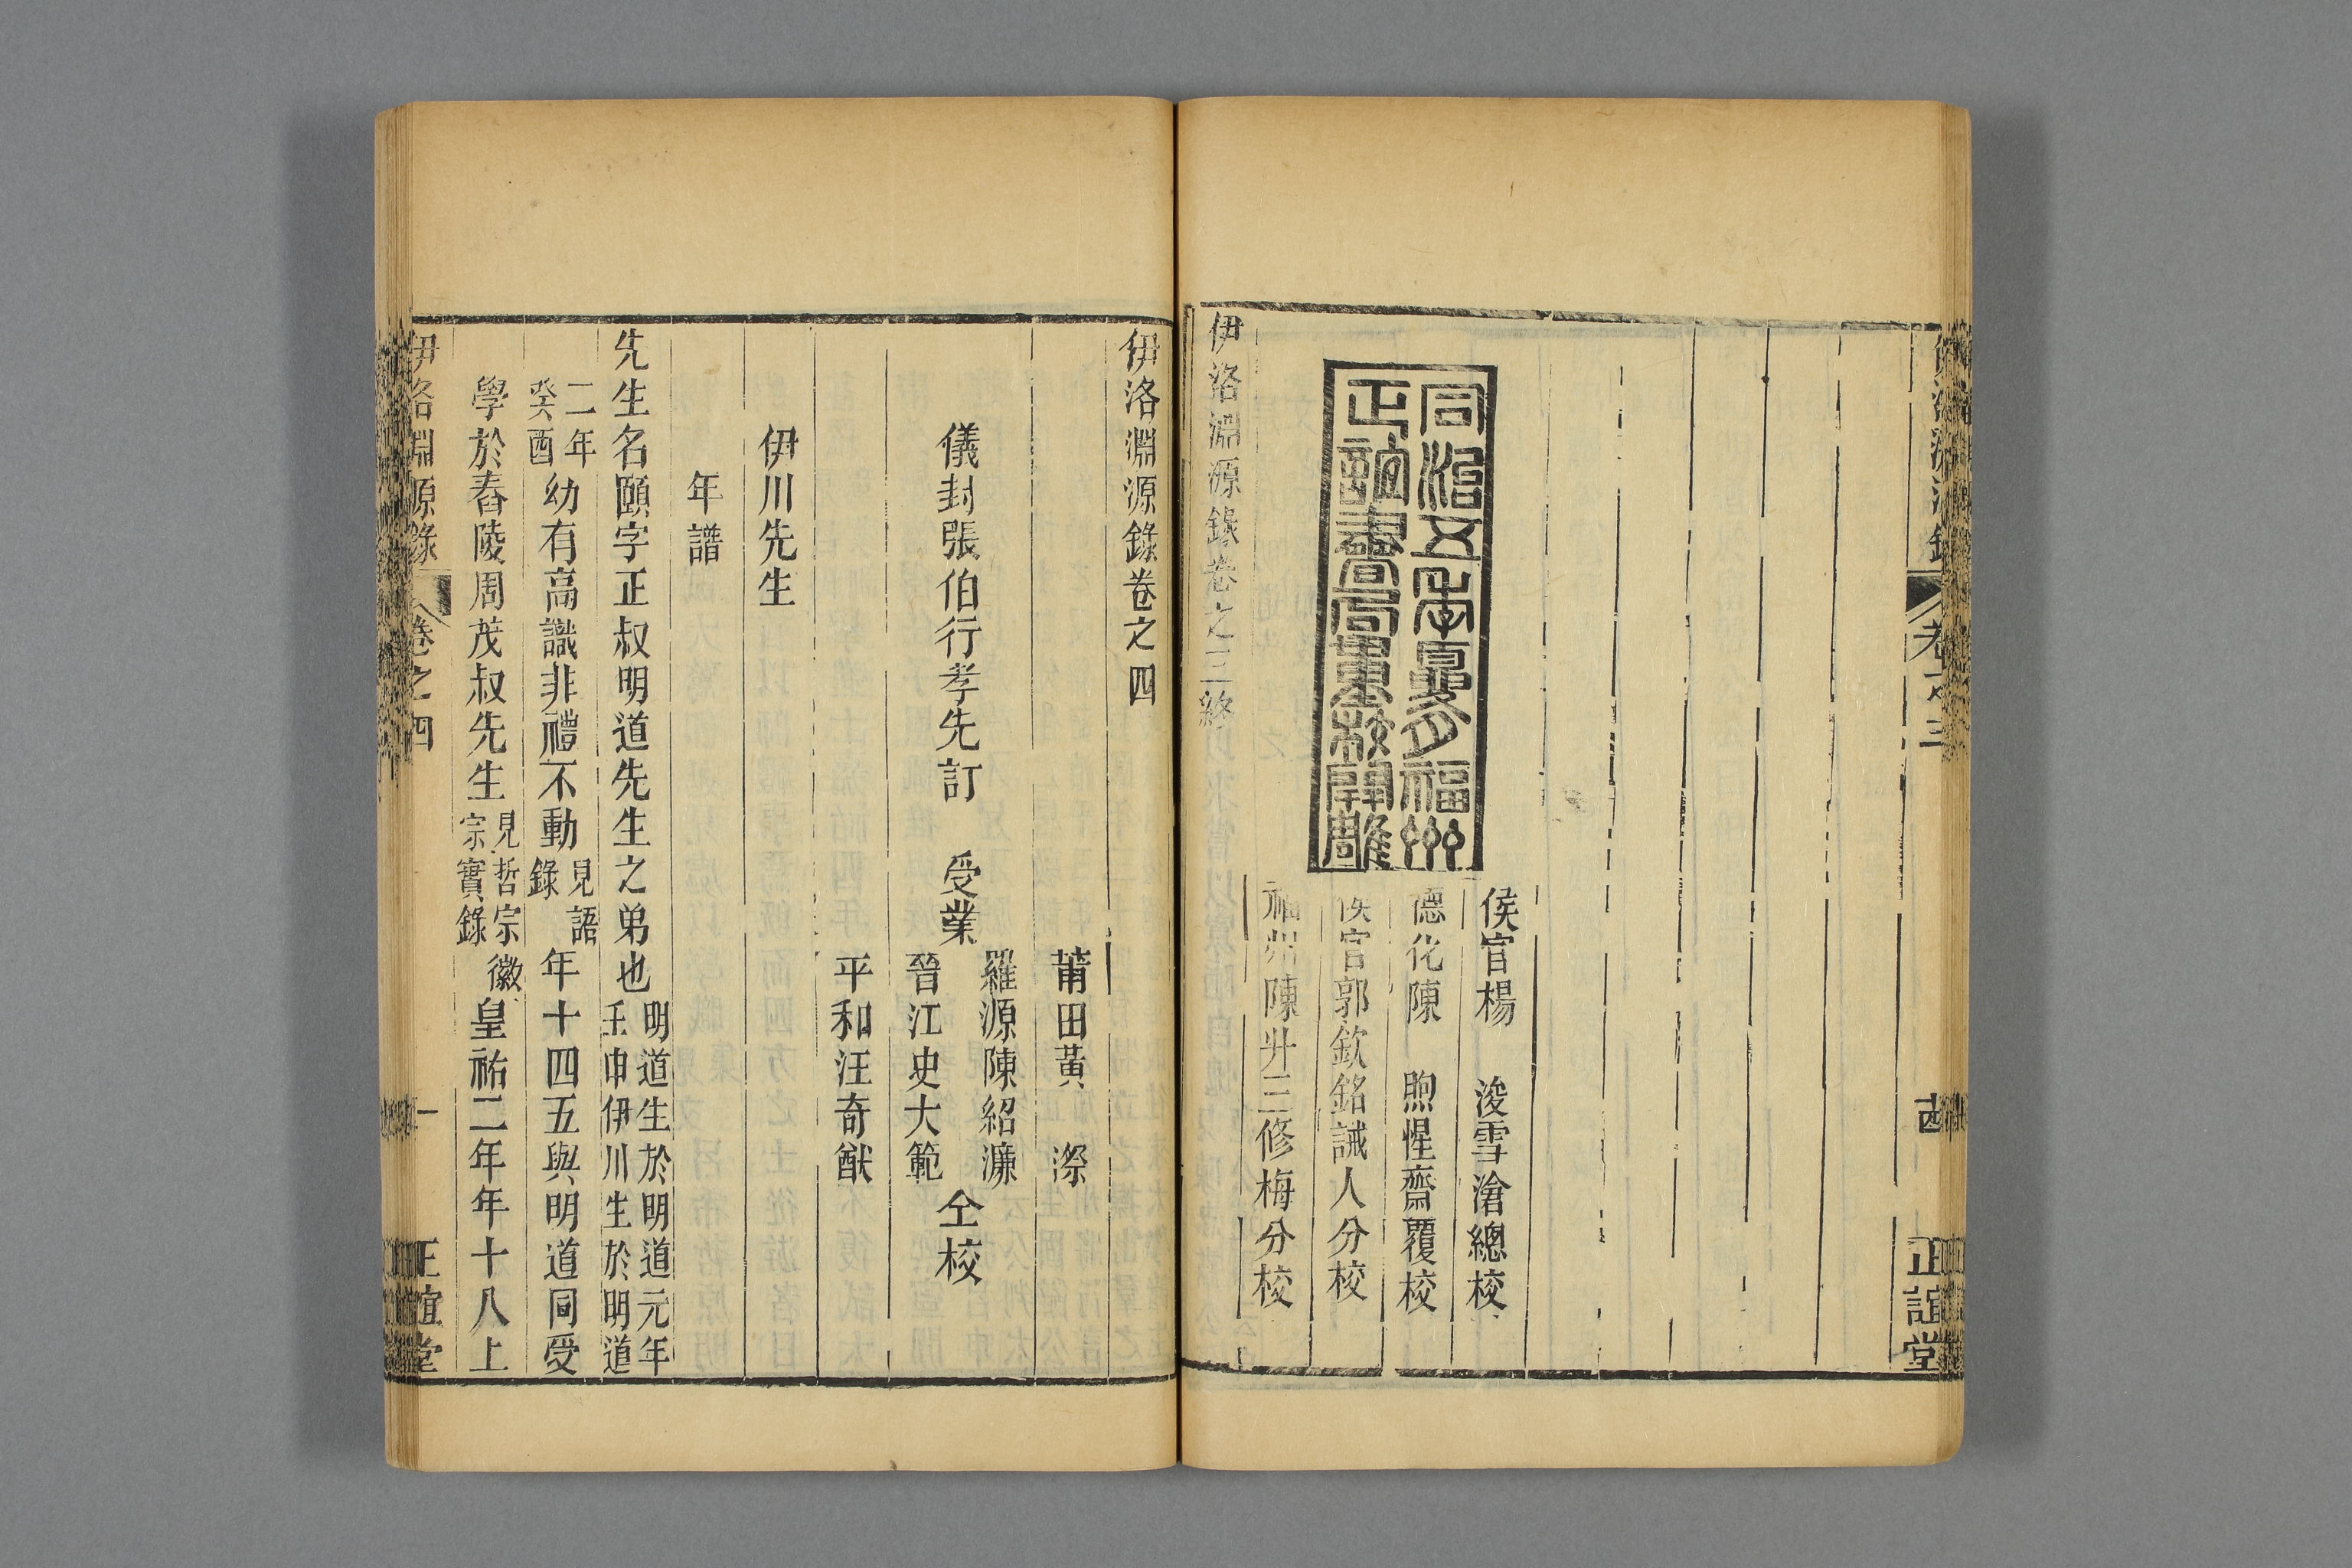 伊洛淵源錄
卷之三
古
正誼堂
同治五年夏月福州
正誼書局重校開雕
侯官楊浚雪滄總校
德化陳煦惺齋覆校
侯官郭欽銘誡人分校
福州陳升三修梅分校
伊洛淵源錄卷之三終
伊洛淵源錄卷之四
莆田黃漈
儀封張伯行孝先訂 受業
羅源陳紹濂
晉江史大範
仝校
平和汪奇猷
伊川先生
年譜
先生名頤字正叔明道先生之弟也
明道生於明道元年
壬申伊川生於明道
二年
癸酉
幼有高識非禮不動
見語
錄
年十四五與明道同受
學於舂陵周茂叔先生
見哲宗徽
宗實錄
皇祐二年年十八上
伊洛淵源錄
卷之四
一
正誼堂